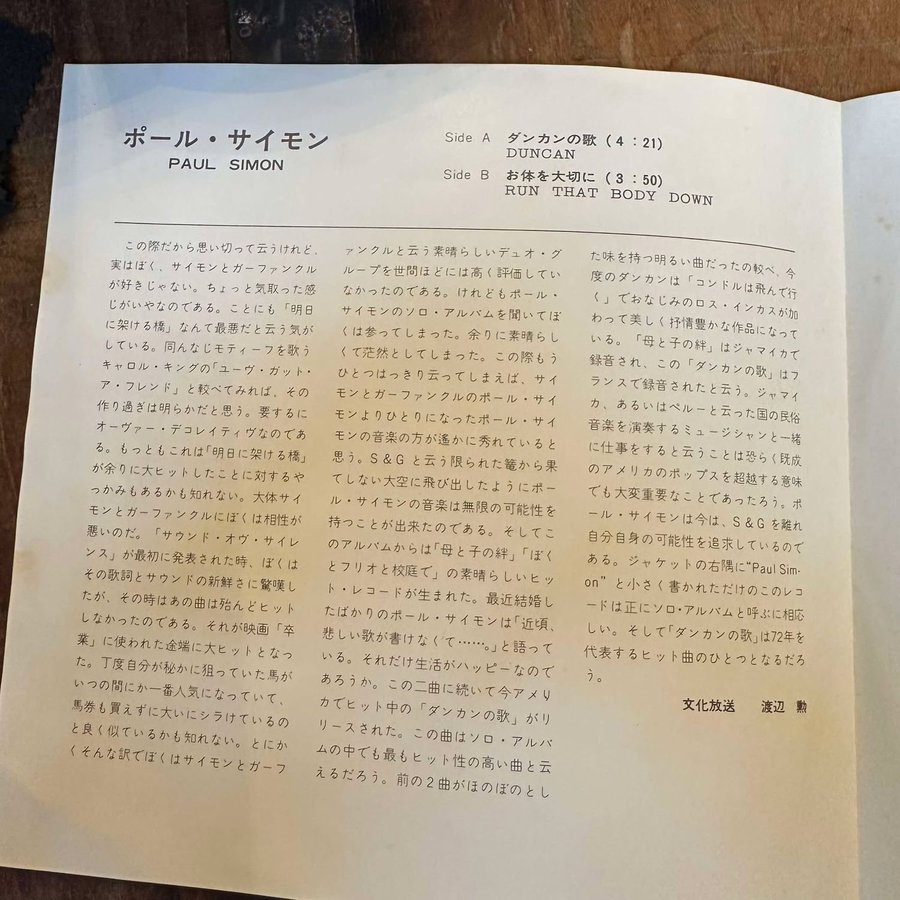 ポール・サイモン
PAUL SIMON
Side A ダンカンの歌(4:21)
DUNCAN
Side B お体を大切に(3:50)
RUN THAT BODY DOWN
この際だから思い切って云うけれど、
実はぼく、サイモンとガーファンクル
が好きじゃない。ちょっと気取った感
じがいやなのである。ことにも「明日
に架ける橋」なんて最悪だと云う気が
している。同んなじモティーフを歌う
キャロル・キングの「ユーヴ・ガット・
ア・フレンド」と較べてみれば、その
作り過ぎは明らかだと思う。要するに
オーヴァー・デコレイティヴなのであ
る。もっともこれは「明日に架ける橋」
が余りに大ヒットしたことに対するや
っかみもあるかも知れない。大体サイ
モンとガーファンクルにぼくは相性が
悪いのだ。「サウンド・オヴ・サイレ
ンス」が最初に発表された時、ぼくは
その歌詞とサウンドの新鮮さに驚嘆し
たが、その時はあの曲は殆んどヒット
しなかったのである。それが映画「卒
業」に使われた途端に大ヒットとなっ
た。丁度自分が秘かに狙っていた馬が
いつの間にか一番人気になっていて、
馬券も買えずに大いにシラけているの
と良く似ているかも知れない。とにか
くそんな訳でぼくはサイモンとガーフ
ァンクルと云う素晴らしいデュオ・グ
ループを世間ほどには高く評価してい
なかったのである。けれどもポール・
サイモンのソロ・アルバムを聞いてぼ
くは参ってしまった。余りに素晴らし
くて茫然としてしまった。この際もう
ひとつはっきり云ってしまえば、サイ
モンとガーファンクルのポール・サイ
モンよりひとりになったポール・サイ
モンの音楽の方が遙かに秀れていると
思う。S&Gと云う限られた篭から果
てしない大空に飛び出したようにポー
ル・サイモンの音楽は無限の可能性を
持つことが出来たのである。そしてこ
のアルバムからは「母と子の絆」「ぼく
とフリオと校庭で」の素晴らしいヒッ
ト・レコードが生まれた。最近結婚し
たばかりのポール・サイモンは「近頃、
悲しい歌が書けなくて……。」と語って
いる。それだけ生活がハッピーなので
あろうか。この二曲に続いて今アメリ
カでヒット中の「ダンカンの歌」がリ
リースされた。この曲はソロ・アルバ
ムの中でも最もヒット性の高い曲と云
えるだろう。前の2曲がほのぼのとし
た味を持つ明るい曲だったの較べ、今
度のダンカンは「コンドルは飛んで行
く」でおなじみのロス・インカスが加
わって美しく抒情豊かな作品になって
いる。「母と子の絆」はジャマイカで
録音され、この「ダンカンの歌」はフ
ランスで録音されたと云う。ジャマイ
カ、あるいはペルーと云った国の民俗
音楽を演奏するミュージシャンと一緒
に仕事をすると云うことは恐らく既成
のアメリカのポップスを超越する意味
でも大変重要なことであったろう。ポ
ール・サイモンは今は、S&Gを離れ
自分自身の可能性を追求しているので
ある。ジャケットの右隅に“Paul Sim-
on”と小さく書かれただけのこのレコ
ードは正にソロ・アルバムと呼ぶに相応
しい。そして「ダンカンの歌」は72年を
代表するヒット曲のひとつとなるだろ
う。
文化放送 渡辺 勲